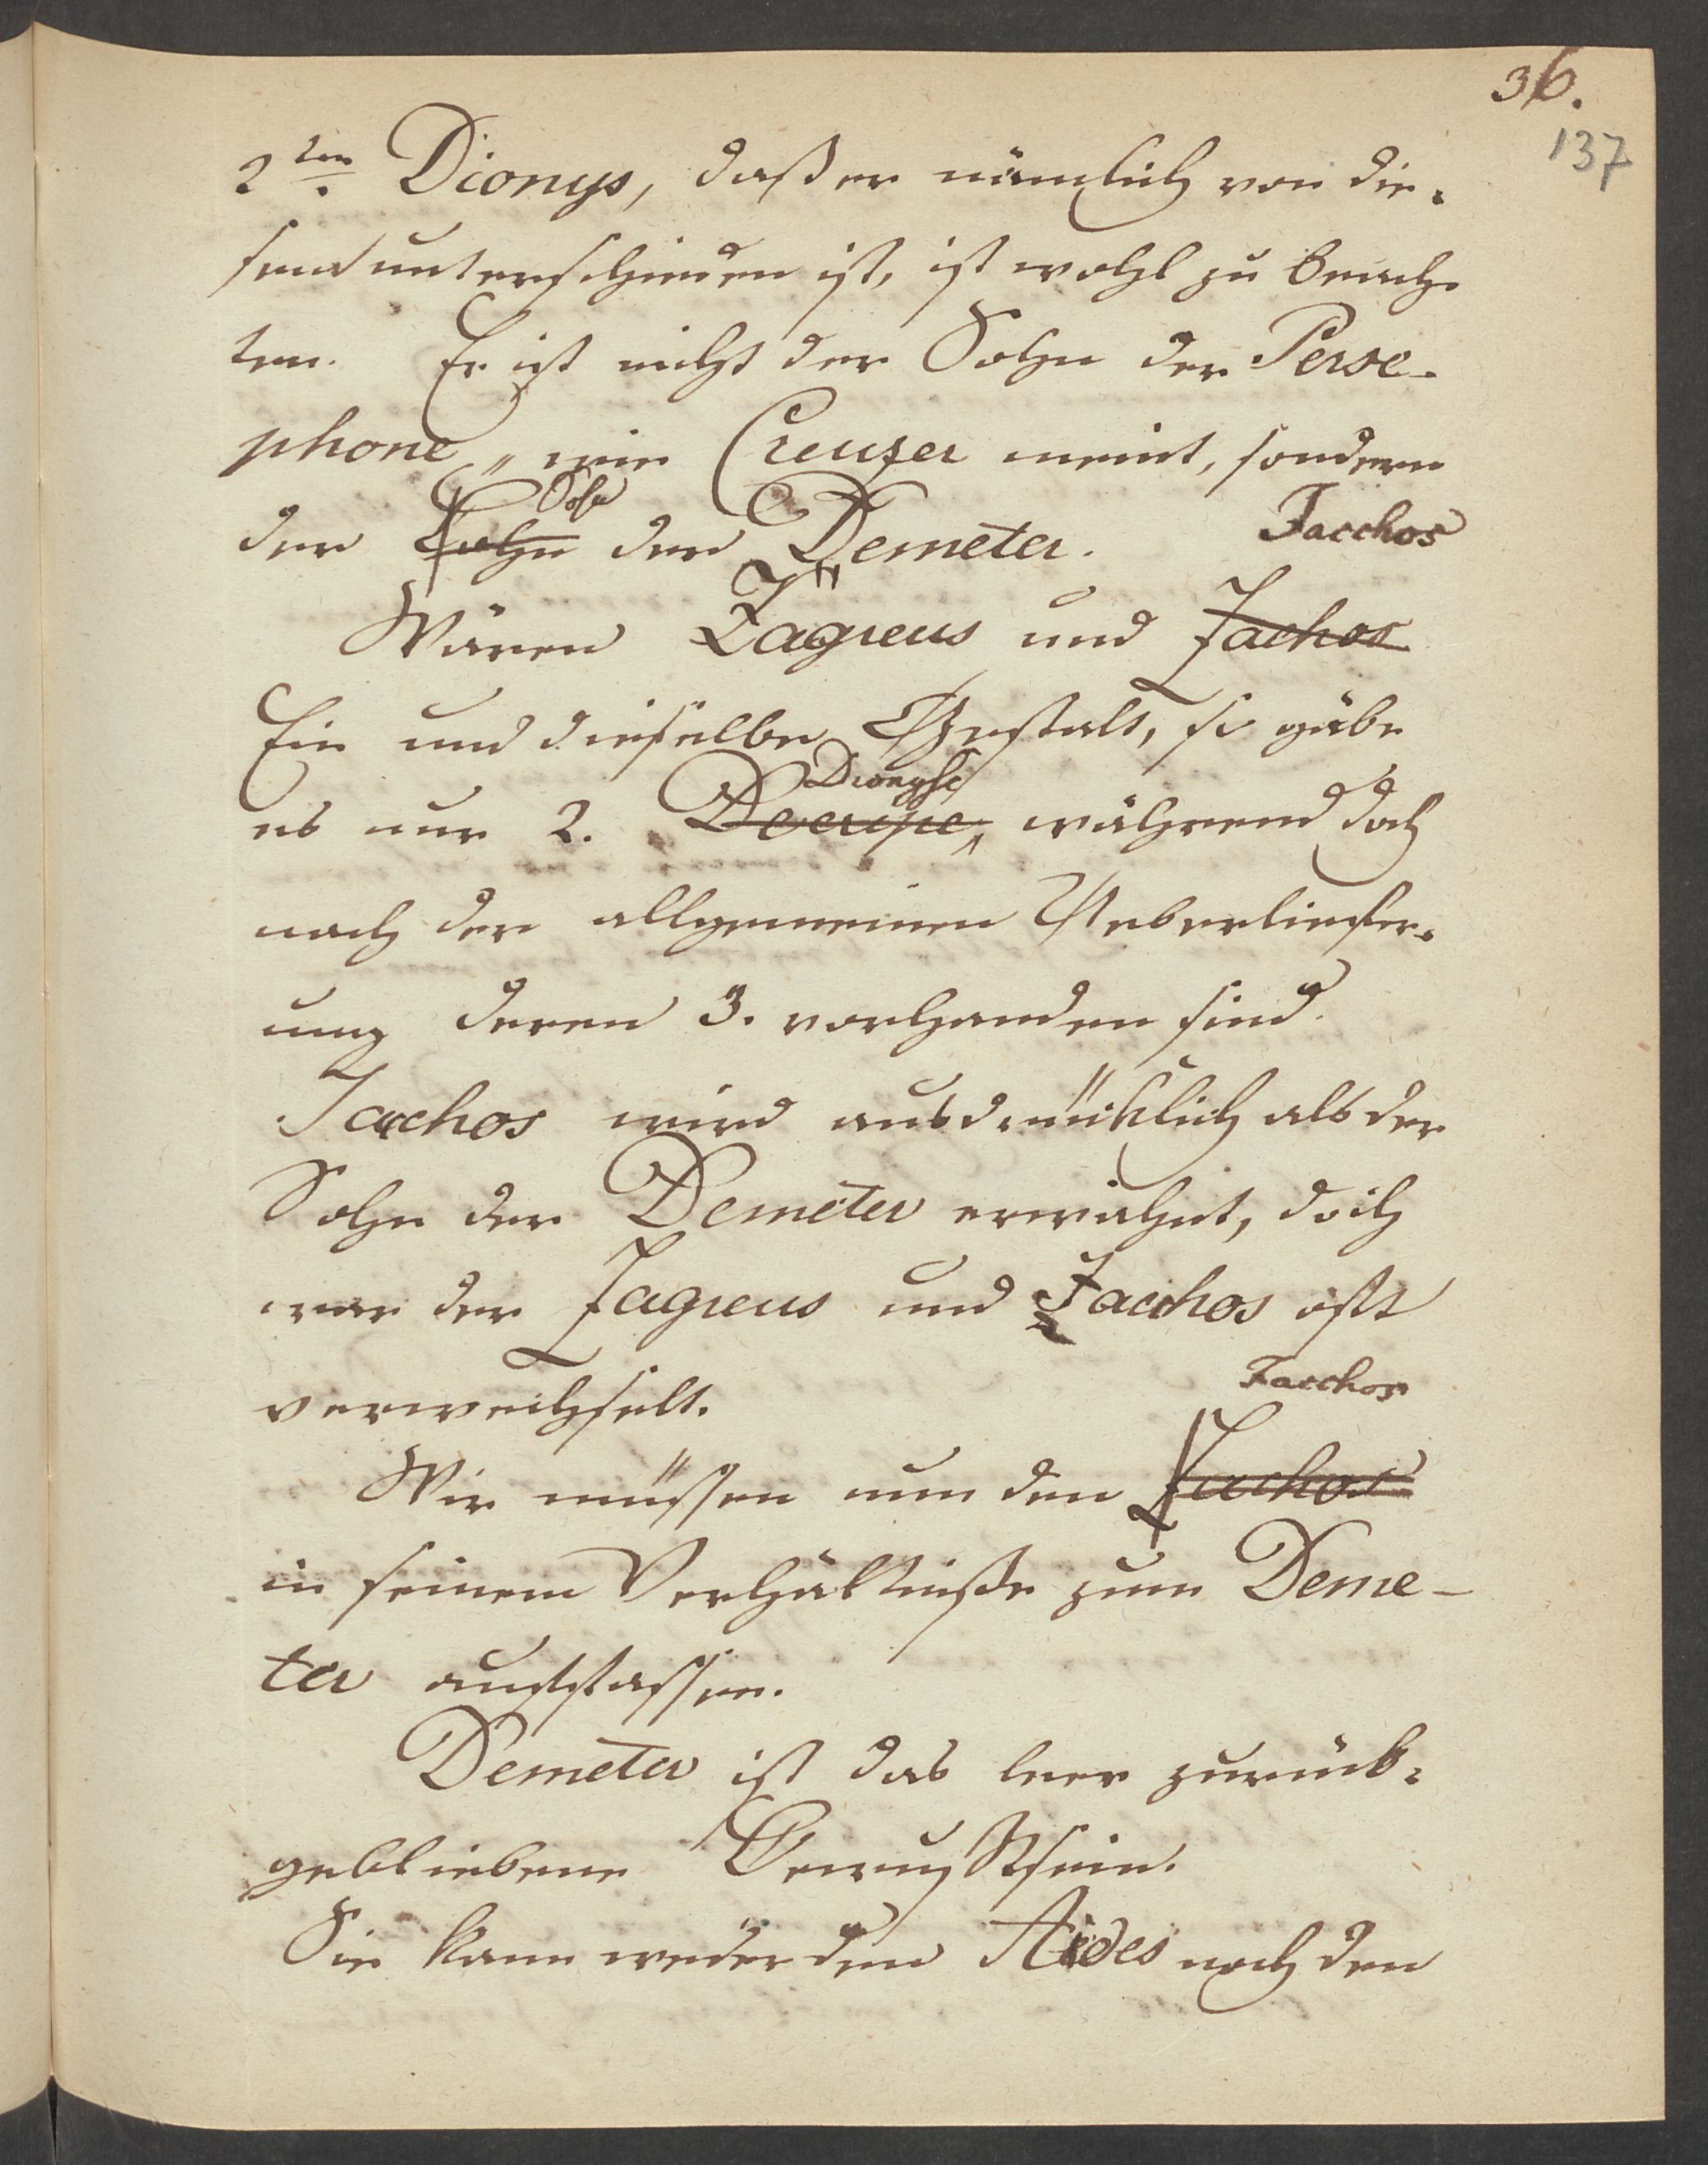 36.
137
2ten Dionys, daß er nämlich von die-
sem unterschieden ist, ist wohl zu beach-
ten. Er ist nicht der Sohn der Perse-
phone, wie Creuzer meint, sondern
Sohn
der Sohn der Demeter.
Jacchos
Wären Zagreus und Jachos
Ein und dieselbe Gestalt, so gäbe
Dionyse
es nur 2. während doch
nach der allgemeinen Ueberliefer-
ung deren 3. vorhanden sind.
Jacchos wird ausdrücklich als der
Sohn der Demeter erwähnt, doch
war der Zagreus und Jacchos oft
verwechselt.
Jacchos
Wir müssen nun den Jachos
in seinem Verhältniße zum Deme-
ter auffassen.
Demeter ist das leer zurück-
gebliebene Bewußtsein.
Sie kann weder dem Aides noch dem